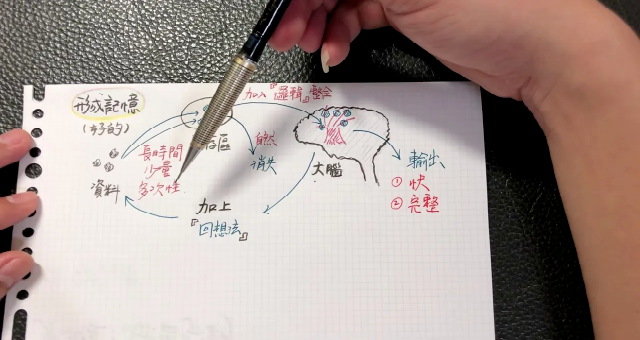 形成記憶
(好的)
加入『邏輯』整合
存區
自然
消失
長時間
少量
多次性
資料
大腦
輸出
① 快
② 完整
加上
『回想法』